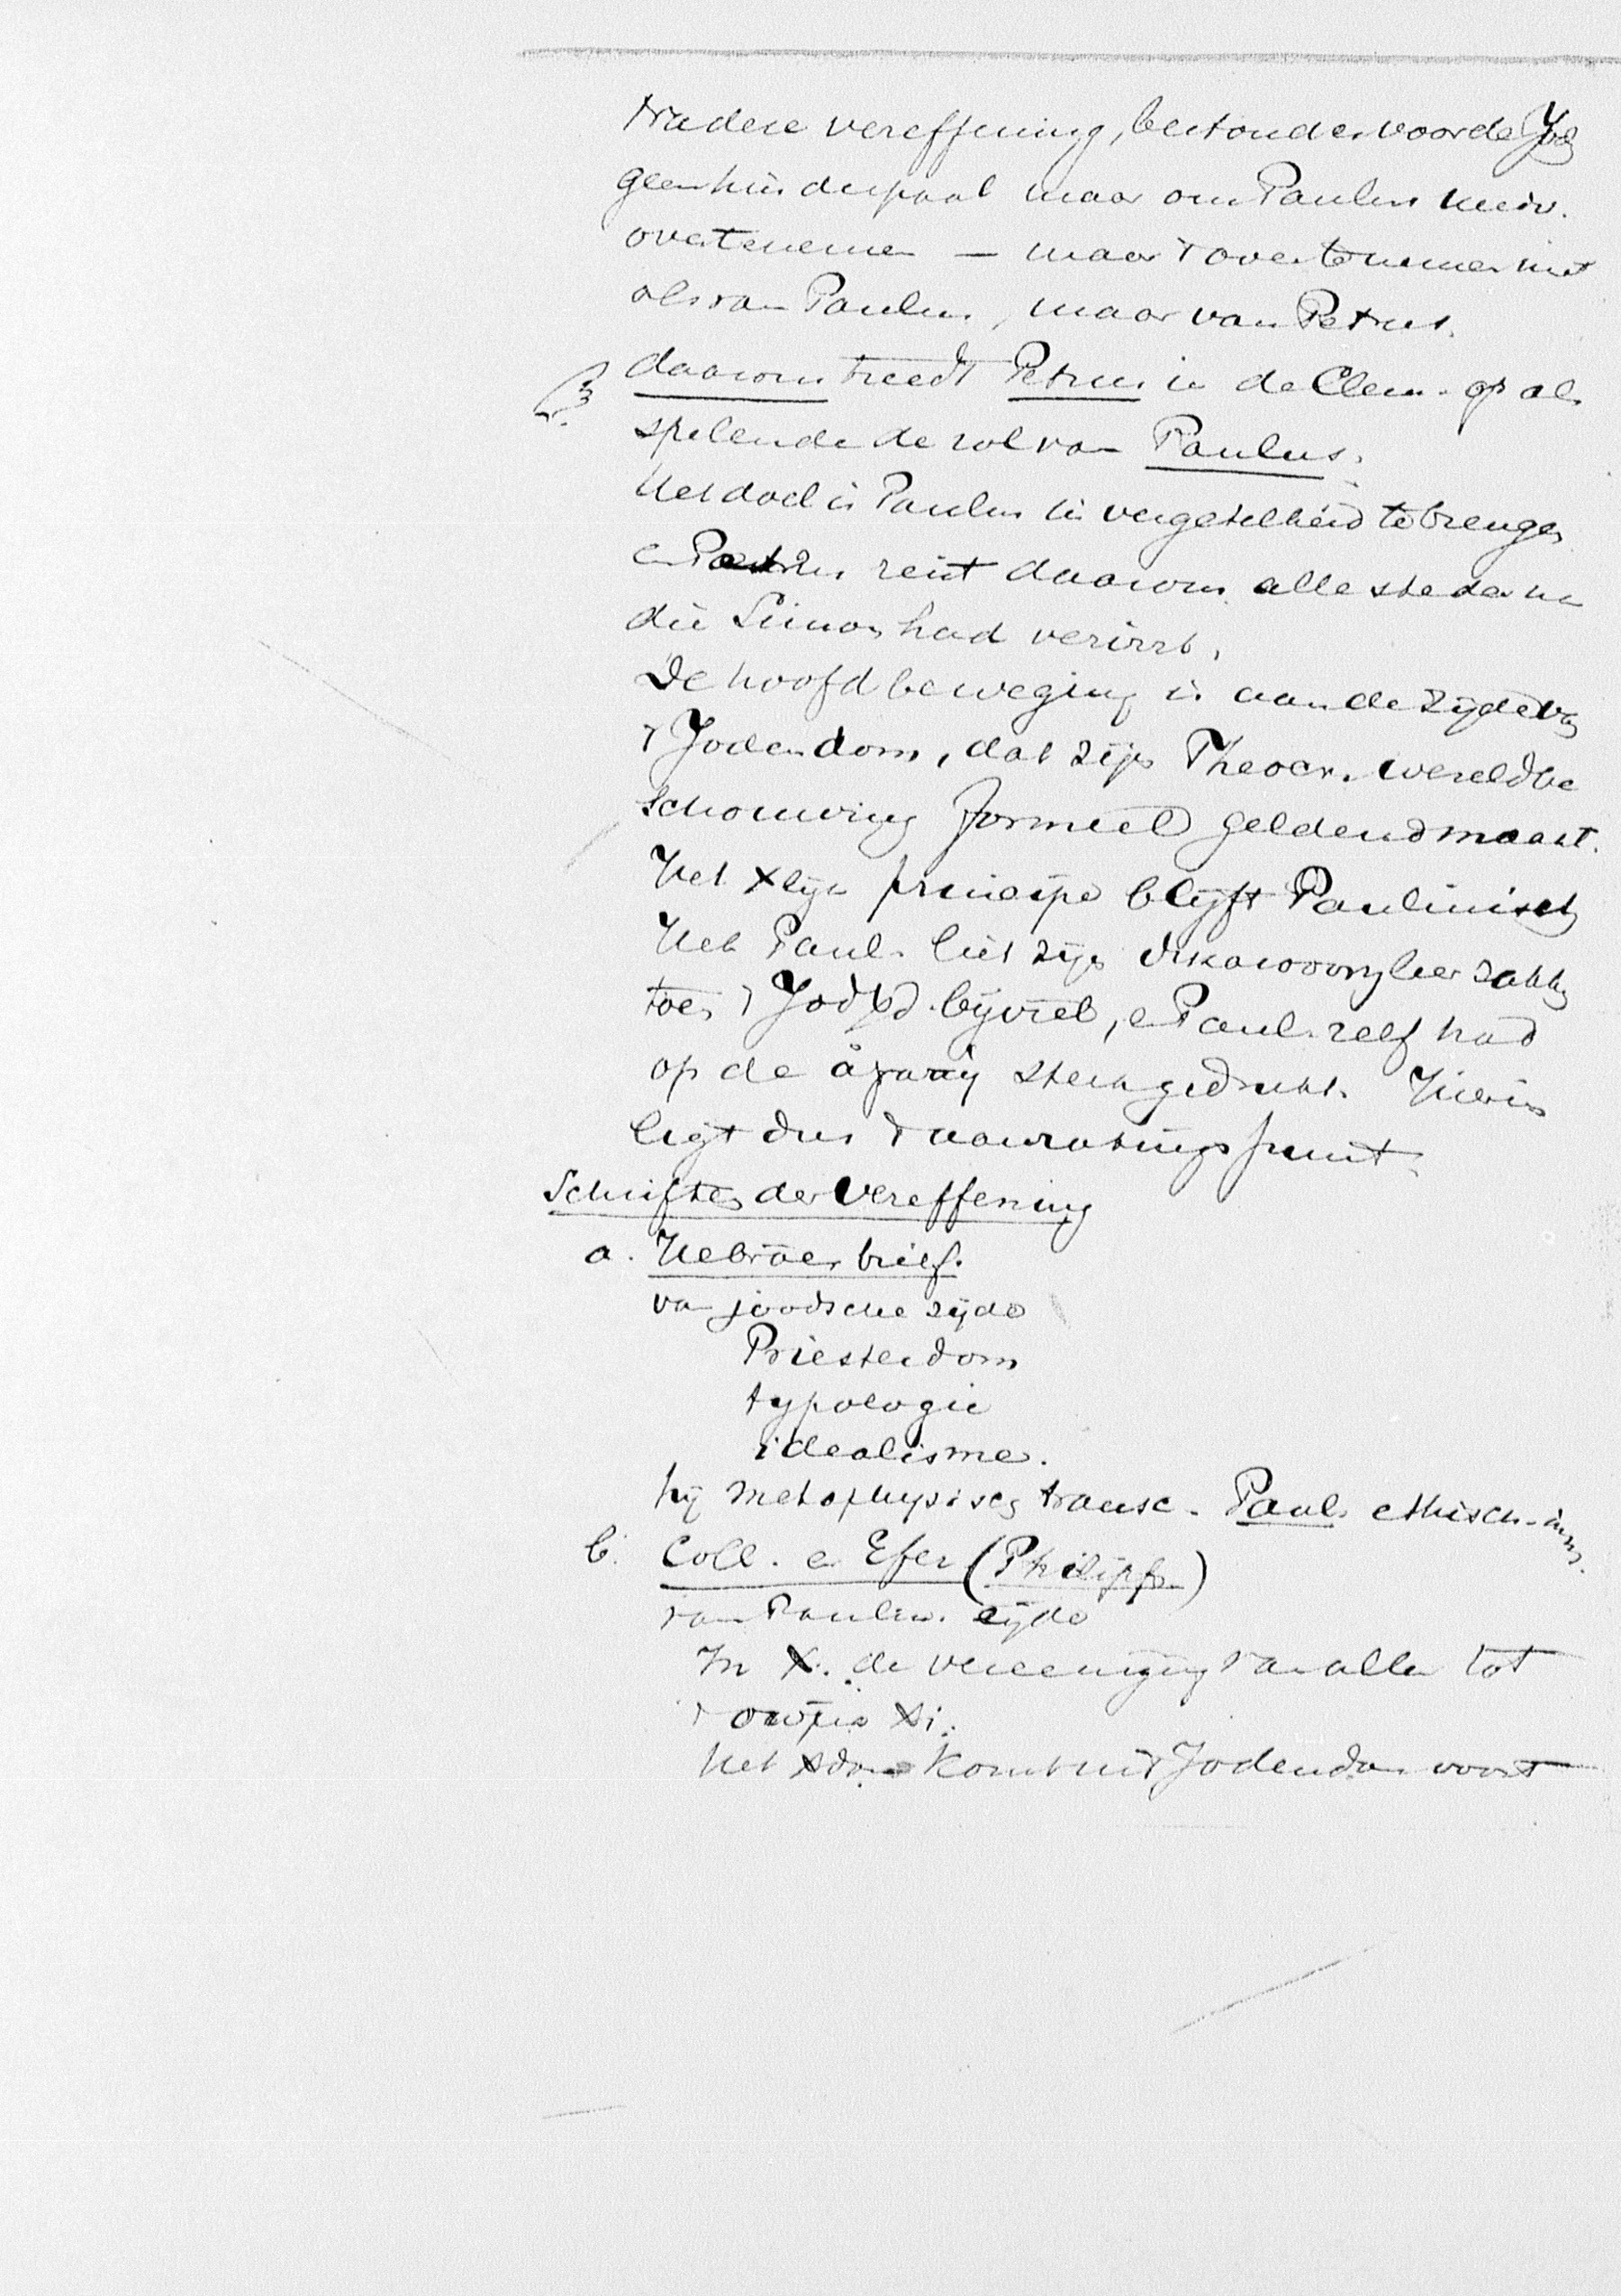 Na deze vereffening, bestond er voor de Jod
geen hinderpaal meer om Paulus univ.
overtenemen — maar 't overtenemen niet
als van Paulus, maar van Petrus.
β. daarom treedt Petrus in de Clem. op als
spelende de rol van Paulus.
Het doel is Paulus in vergetelheid te brengen
en Petrus reist daarom alle steden na
die Simon had verirrt.
De hoofdbeweging is aan de zijde van
't Jodendom, dat zijn Theocr. wereldbe
schouwing formeel geldend maakt.
Het Xlijk principe blijft Paulinisch
Het Paul. liet zijn leer zakken
toen 't Jod bijviel, en Paul. zelf had
op de ἀγάπη sterk gedrukt. Hierin
ligt dus 't punt.
Schriften der Vereffening
a. Hebräer brief.
van joodsche zijde
Priesterdom
typologie
idealisme.
hij metaphysisch transc. Paul. ethisch-imm.
b. Coll. en Efez (Philipp.)
van Paulin. zijde
In X. de vereeniging van allen tot
't σωμα Xi.
Het Xdom komt uit 't Jodendom voort